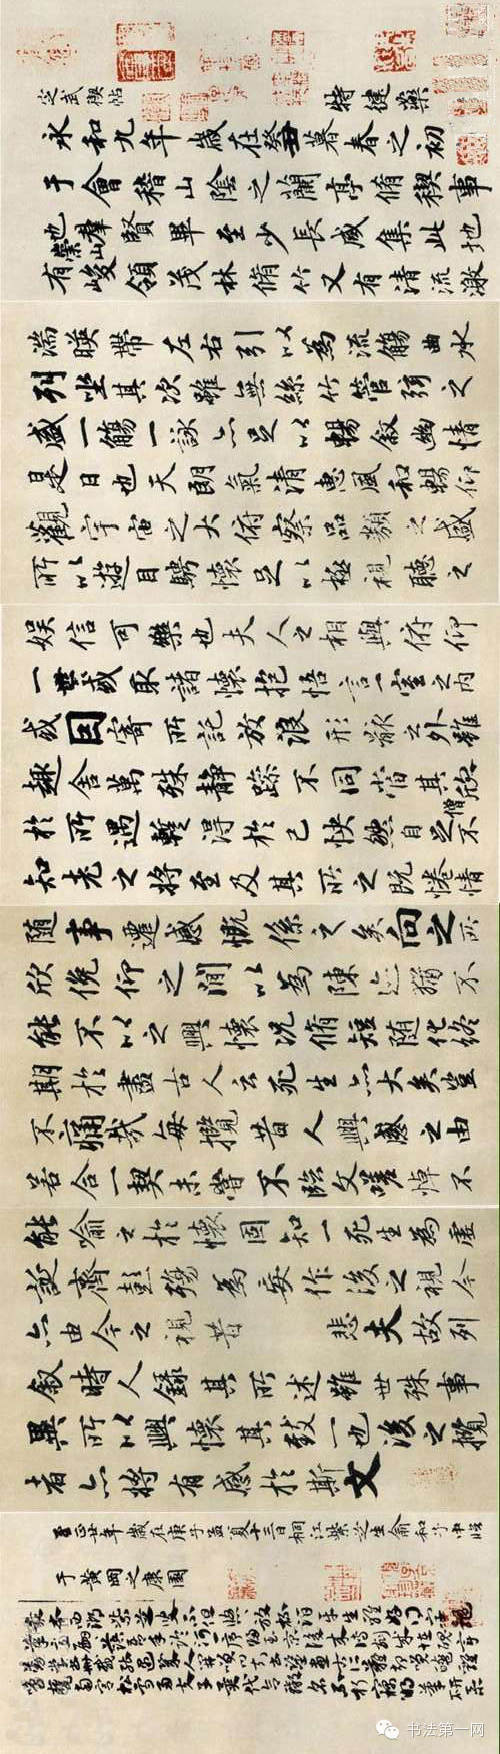 定武稧帖
特健藥
永和九年歲在癸丑暮春之初會
于會稽山陰之蘭亭脩稧事
也羣賢畢至少長咸集此地
有崇山峻領茂林脩竹又有清流激
湍暎帶左右引以為流觴曲水
列坐其次雖無絲竹管弦之
盛一觴一詠亦足以暢敘幽情
是日也天朗氣清惠風和暢仰
觀宇宙之大俯察品類之盛
所以遊目騁懷足以極視聽之
娛信可樂也夫人之相與俯仰
一世或取諸懷抱悟言一室之內
或因寄所託放浪形骸之外雖
趣舍萬殊靜躁不同當其欣
僧
於所遇暫得於己怏然自足不
知老之將至及其所之既惓情
隨事遷感慨係之矣向之所
欣俛仰之閒以為陳迹猶不
能不以之興懷況脩短隨化終
期於盡古人云死生亦大矣豈
不痛哉每攬昔人興感之由
若合一契未嘗不臨文嗟悼不
能喻之於懷固知一死生為虛
誕齊彭殤為妄作後之視今
亦由今之視昔 悲夫故列
敘時人錄其所述雖世殊事
異所以興懷其致一也後之攬
者亦將有感於斯文
至正廿年歲在庚子孟夏十三日桐江紫芝生俞和子中臨
于黃岡之康園
书法第一网